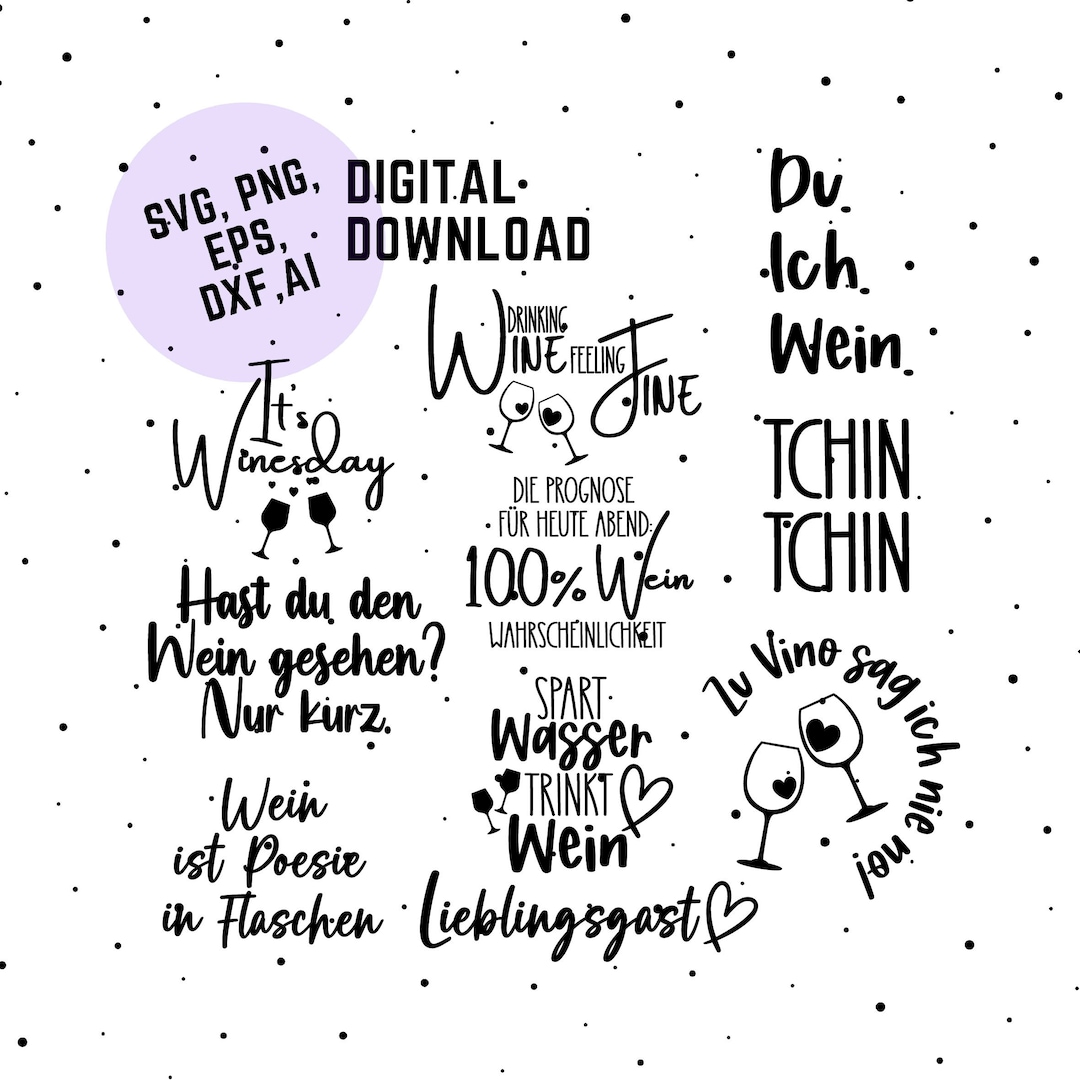 SVG, PNG,
EPS,
DXF ,AI
DIGITAL
DOWNLOAD
It's
Winesday
Hast du den
Wein gesehen?
Nur kurz.
Wein
ist Poesie
in Flaschen
DRINKING
WINE FEELING FINE
DIE PROGNOSE
FÜR HEUTE ABEND:
100% Wein
WAHRSCHEINLICHKEIT
SPART
Wasser
TRINKT
Wein
Lieblingsgast
Du.
Ich.
Wein.
TCHIN
TCHIN
Zu Vino sag ich nie no!